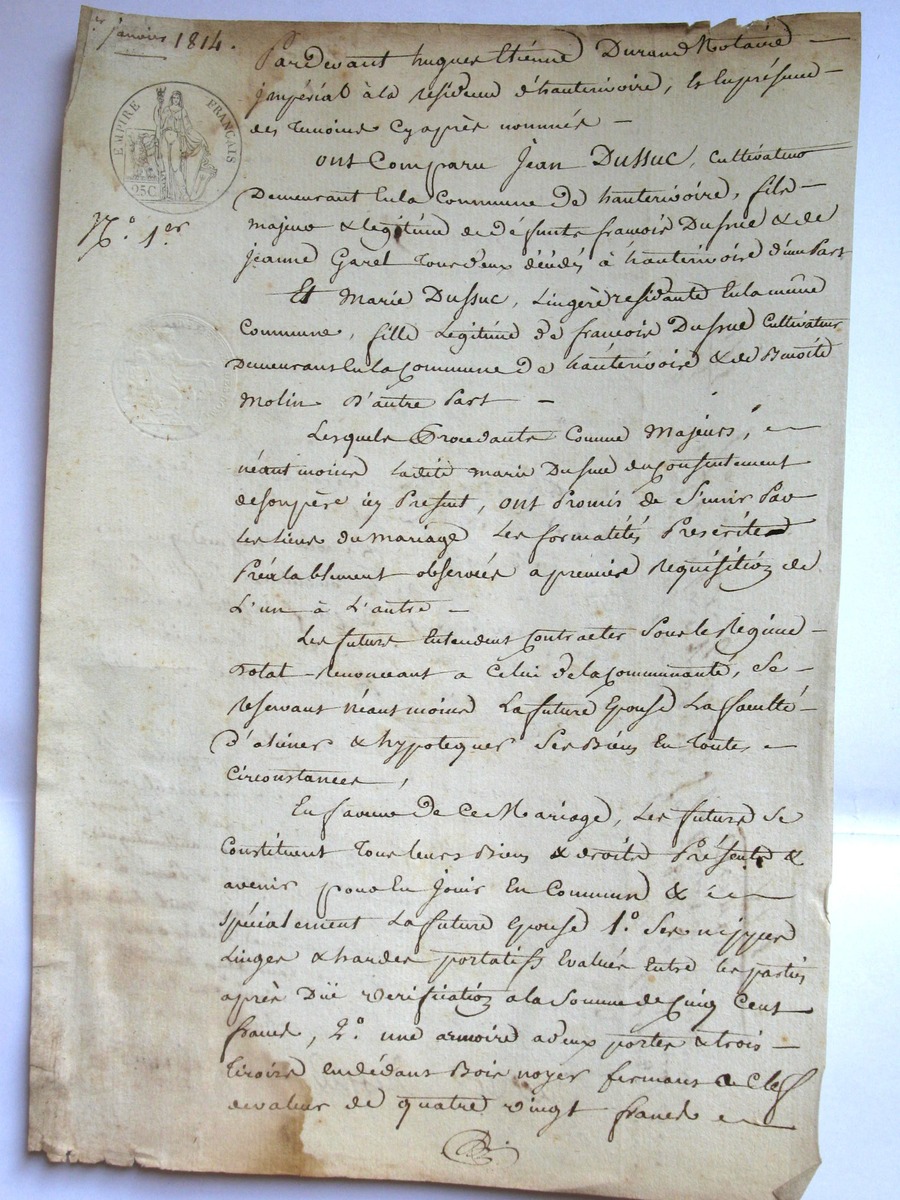 janvier 1814.
EMPIRE FRANÇAIS
25C
N.° 1.er
Pardevant hugues Etienne Durand Notaire
jmpérial à la residence d'hauterivoire, & En présence
des Temoins Cy après nommés
ont Comparu Jean Dussuc, Cultivateur
Demeurant En la Commune De hauterivoire, fils
majeur & legitime de défunts francois Dussuc & de
jeanne Garel Tous deux décédés à hauterivoire d'une Part
Et Marie Dussuc, Lingère residante En la même
Commune, fille Legitime de francois Dussuc Cultivateur
Demeurant En la Commune De hauterivoire & de Benoite
Molin D'autre Part
Lesquels Procedants Comme Majeurs,
néantmoins Ladite marie Dussuc du Consentement
de son père icy Present, ont Promis de S'unir Par
Les Liens du mariage Les formalités Prescrites
Préalablement observées a première requisition de
L'un à L'autre
Les futurs Entendent Contracter Sous le Régime
Dotal renoncant a Celui de la Communauté, Se
reservant Néantmoins La future Epouse La faculté
D'aliéner & hypotequer Ses Biens En Toutes
Circonstances,
En faveur de Ce Mariage, Les futurs Se
Constituent Tous leurs Biens & droits Présents &
avenir pour En Jouir En Commun &
Spécialement La future Epouse 1.° Ses nippes
Linges & hardes portatifs Evalués Entre les parties
après Düe verification a la Somme de Cinq Cent
francs, 2.° une armoire a deux portes & trois
Tiroirs en dédans Bois noyer fermant a Clef
de valeur de quatre vingt francs